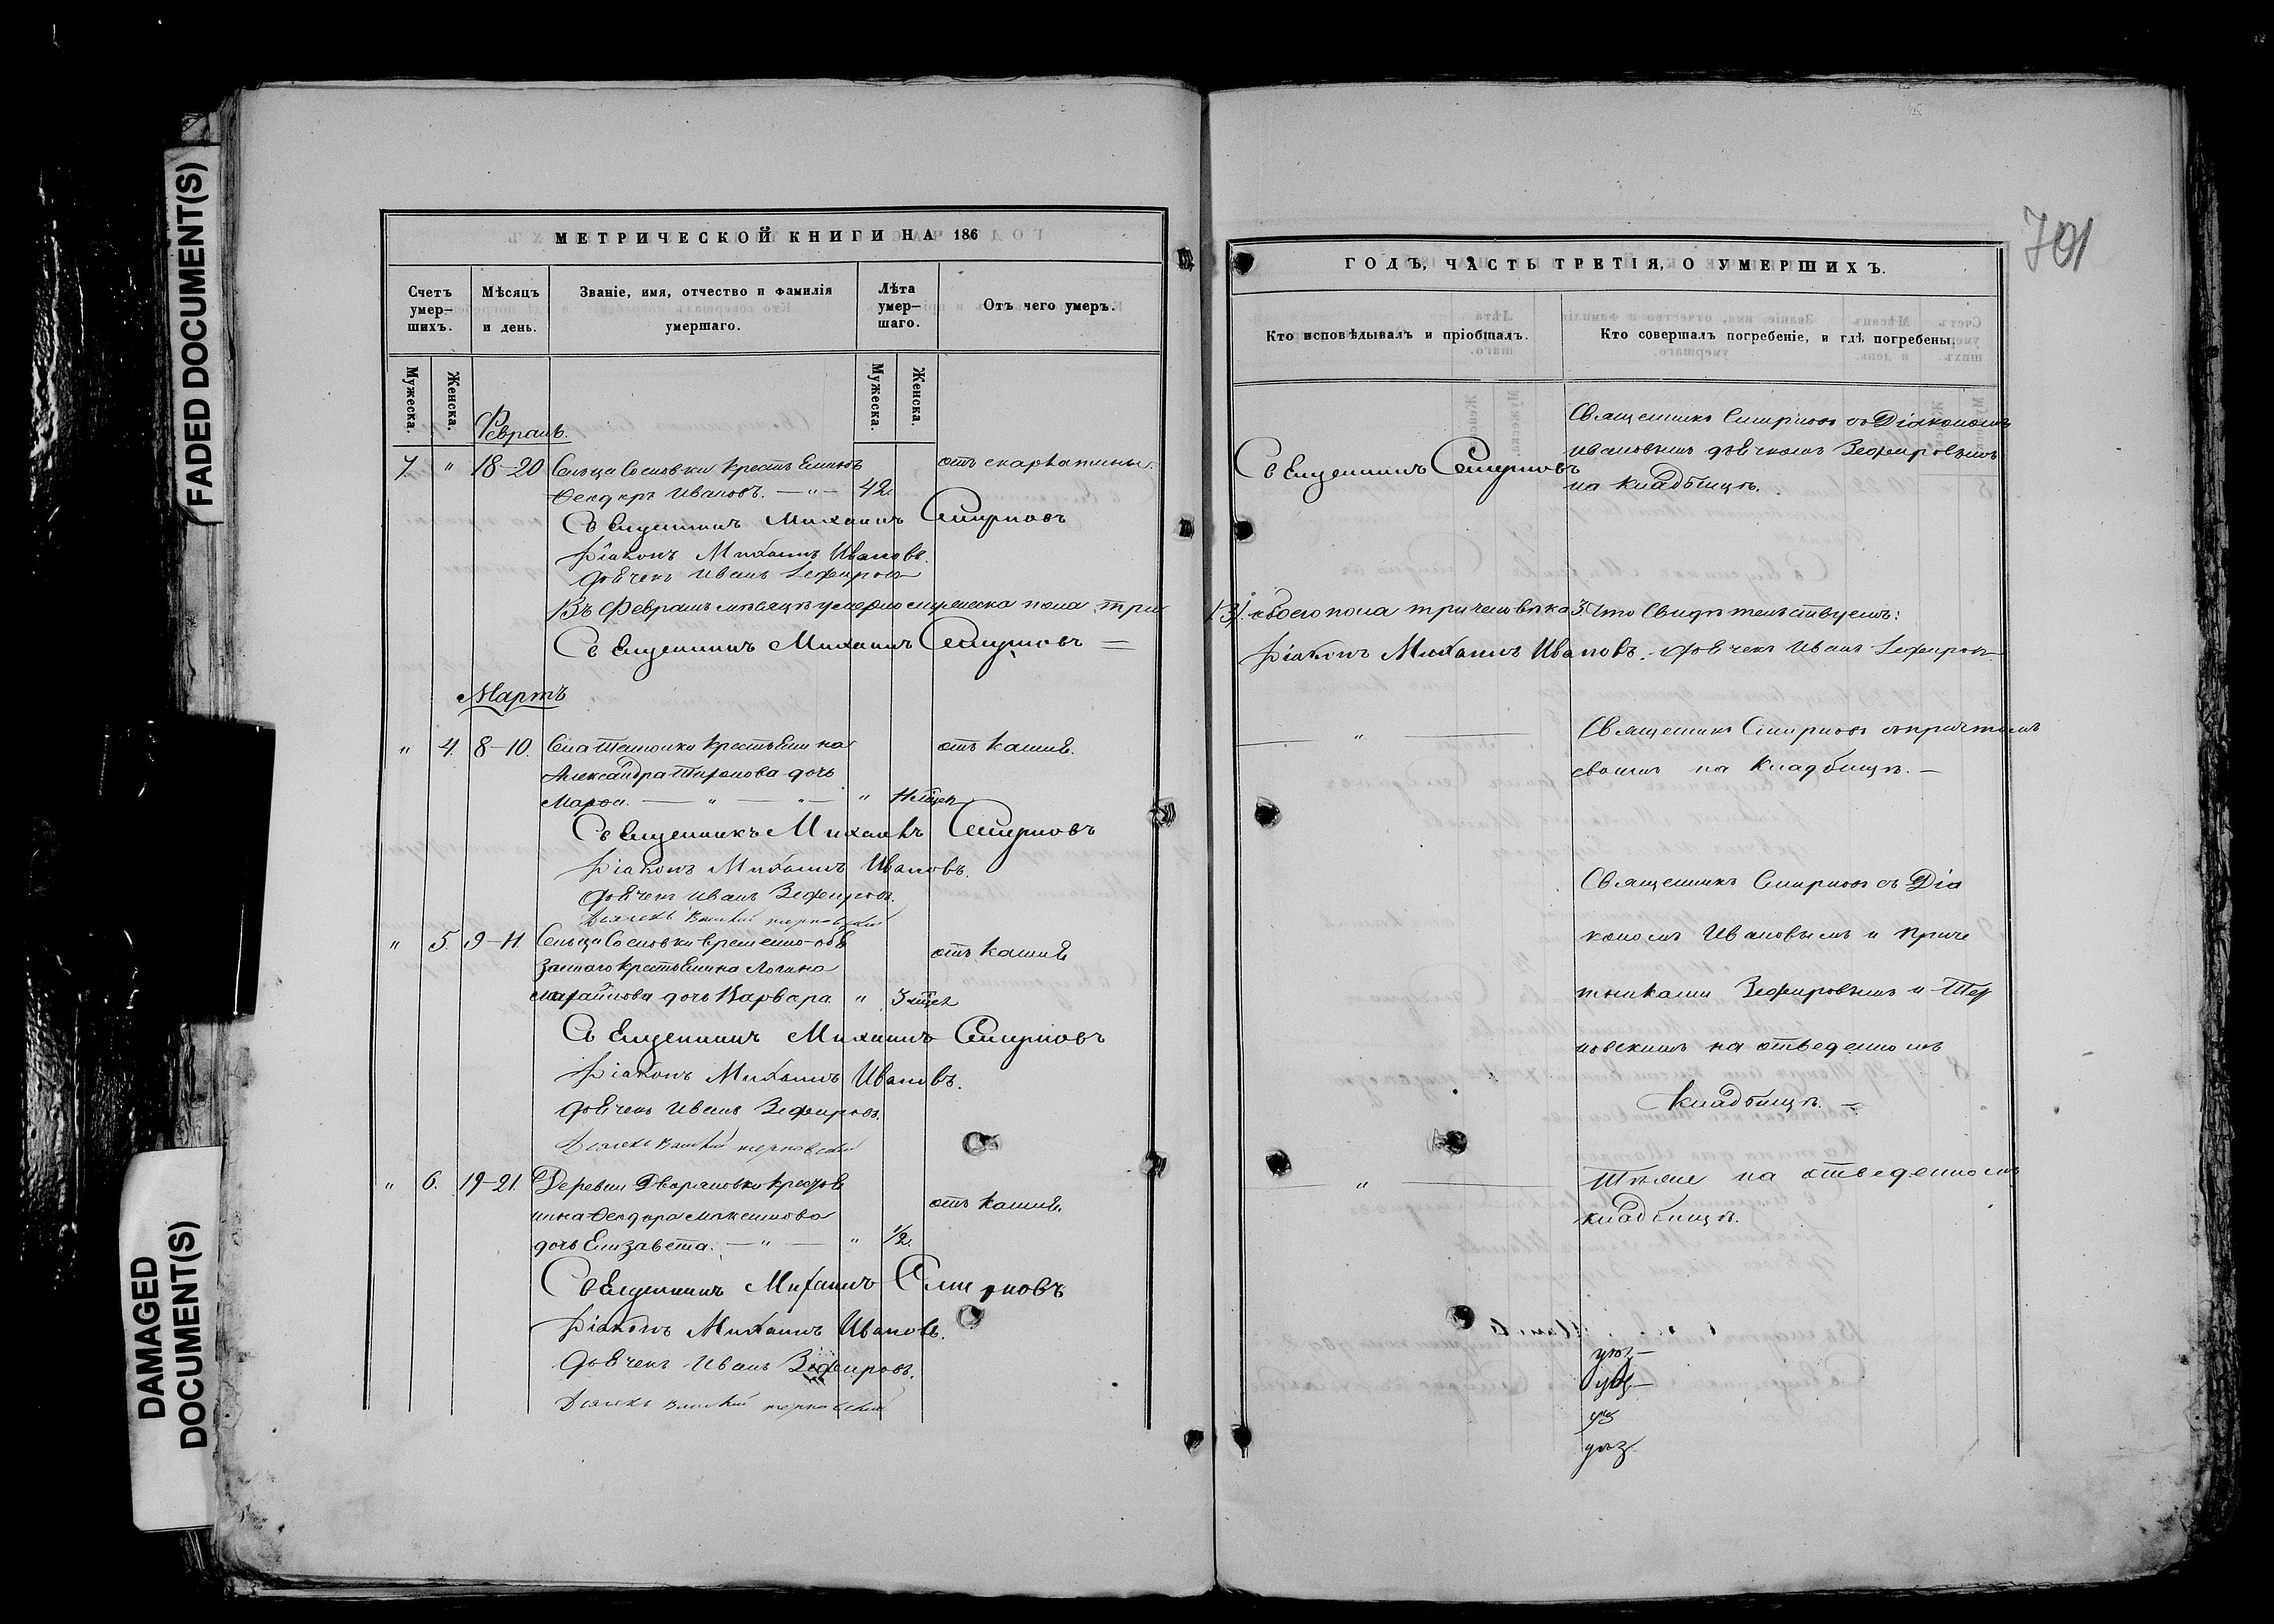 FADED DOCUMENT(S)
DAMAGED DOCUMENT(S)
МЕТРИЧЕСКОЙ КНИГИ НА 186
Счетъ умер-шихъ.
Мѣсяцъ и день.
Званіе, имя, отчество и фамилія умершаго.
Лѣта умер-шаго.
Отъ чего умеръ.
Мужеска.
Женска.
Мужеска.
Женска.
Февраль.
7. " 18-20 Сельца Сосновки крестьянинъ отъ скарлатины.
Ѳеодоръ Ивановъ. — " — 42
Священникъ Михаилъ Смирновъ
Діаконъ Михаилъ Ивановъ.
дьячекъ Иванъ Зефировъ
Въ Февралѣ мѣсяцѣ умерло мужеска пола три
Священникъ Михаилъ Смирновъ =
Мартъ
" 4. 8-10. крестьянина отъ кашля.
Александра дочь
— " — " — "
Священникъ Михаилъ Смирновъ
Діаконъ Михаилъ Ивановъ.
дьячекъ Иванъ Зефировъ.
Дьячекъ Терновскій
" 5 9-11 Сельца Сосновки временно-обя отъ кашля
заннаго крестьянина Логина
дочь Варвара " 3
Священникъ Михаилъ Смирновъ
Діаконъ Михаилъ Ивановъ.
дьячекъ Иванъ Зефировъ.
Дьячекъ Терновскій
" 6. 19-21. Деревни Дворяновки крестья
нина Ѳеодора Максимова отъ кашля.
дочь Елизавета. — " — " 1/2.
Священникъ Михаилъ Смирновъ
Діаконъ Михаилъ Ивановъ.
дьячекъ Иванъ Зефировъ.
Дьячекъ Терновскій
701
ГОДЪ, ЧАСТЬ ТРЕТІЯ, О УМЕРШИХЪ.
Кто исповѣдывалъ и пріобщалъ.
Кто совершалъ погребеніе, и гдѣ погребены.
Священникъ Смирновъ
Священникъ Смирновъ съ Діакономъ
Ивановымъ дьячкомъ Зефировымъ
на кладбищѣ.
/3/. обоего пола три человѣка 3. Что свидѣтельствуемъ:
Діаконъ Михаилъ Ивановъ. дьячекъ Иванъ Зефировъ
— " —
Священникъ Смирновъ съ причтомъ
своимъ на кладбищѣ. —
Священникъ Смирновъ съ Діа
кономъ Ивановымъ и приче
тниками Зефировымъ и Тер
новскимъ на отведенномъ
кладбищѣ. —
— " —
Тѣже на отведенномъ
кладбищѣ.